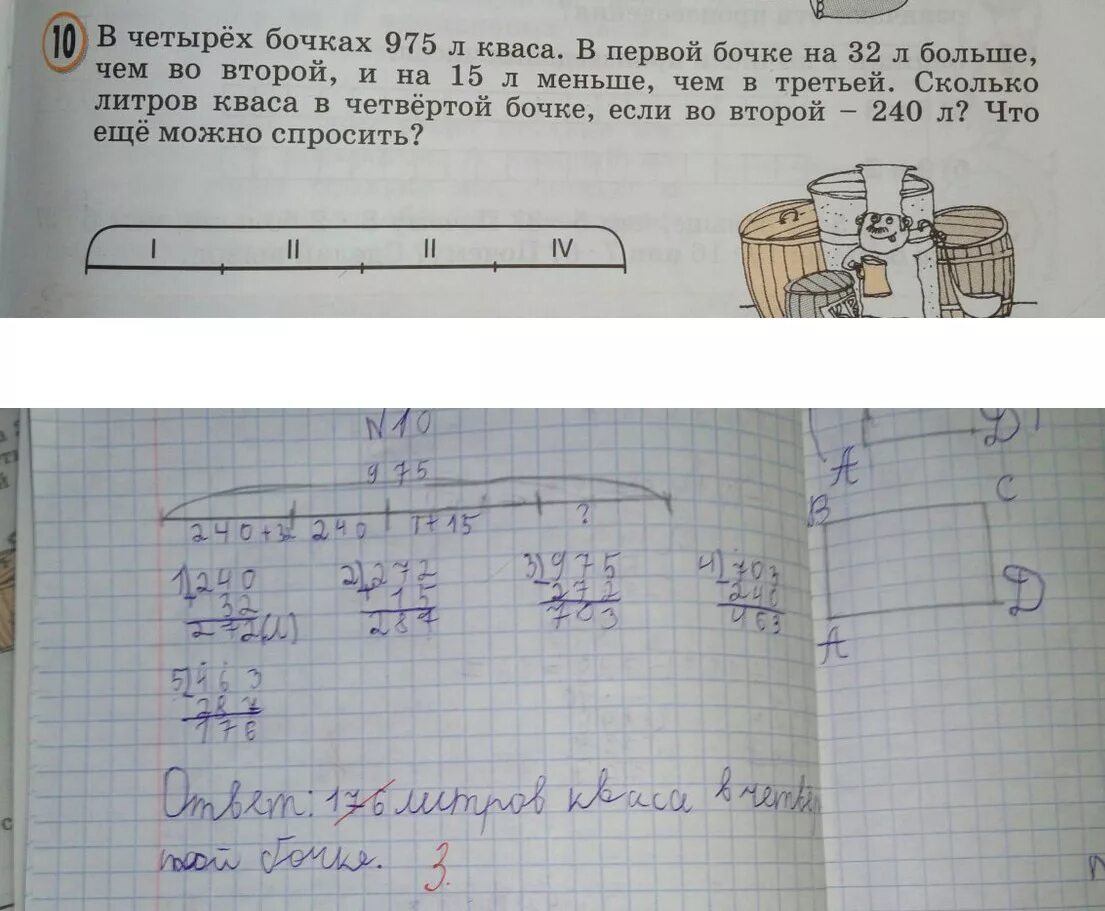 10 В четырёх бочках 975 л кваса. В первой бочке на 32 л больше,
чем во второй, и на 15 л меньше, чем в третьей. Сколько
литров кваса в четвёртой бочке, если во второй – 240 л? Что
ещё можно спросить?
I II II IV
N10
975
240+32 240 I+15 ?
1) 240
+ 32
272(л)
2) 272
+ 15
287
3) 975
- 272
703
4) 703
- 240
463
5) 463
- 287
176
Ответ: 176 литров кваса в четвёр
той бочке. 3.
A D
B C
A D